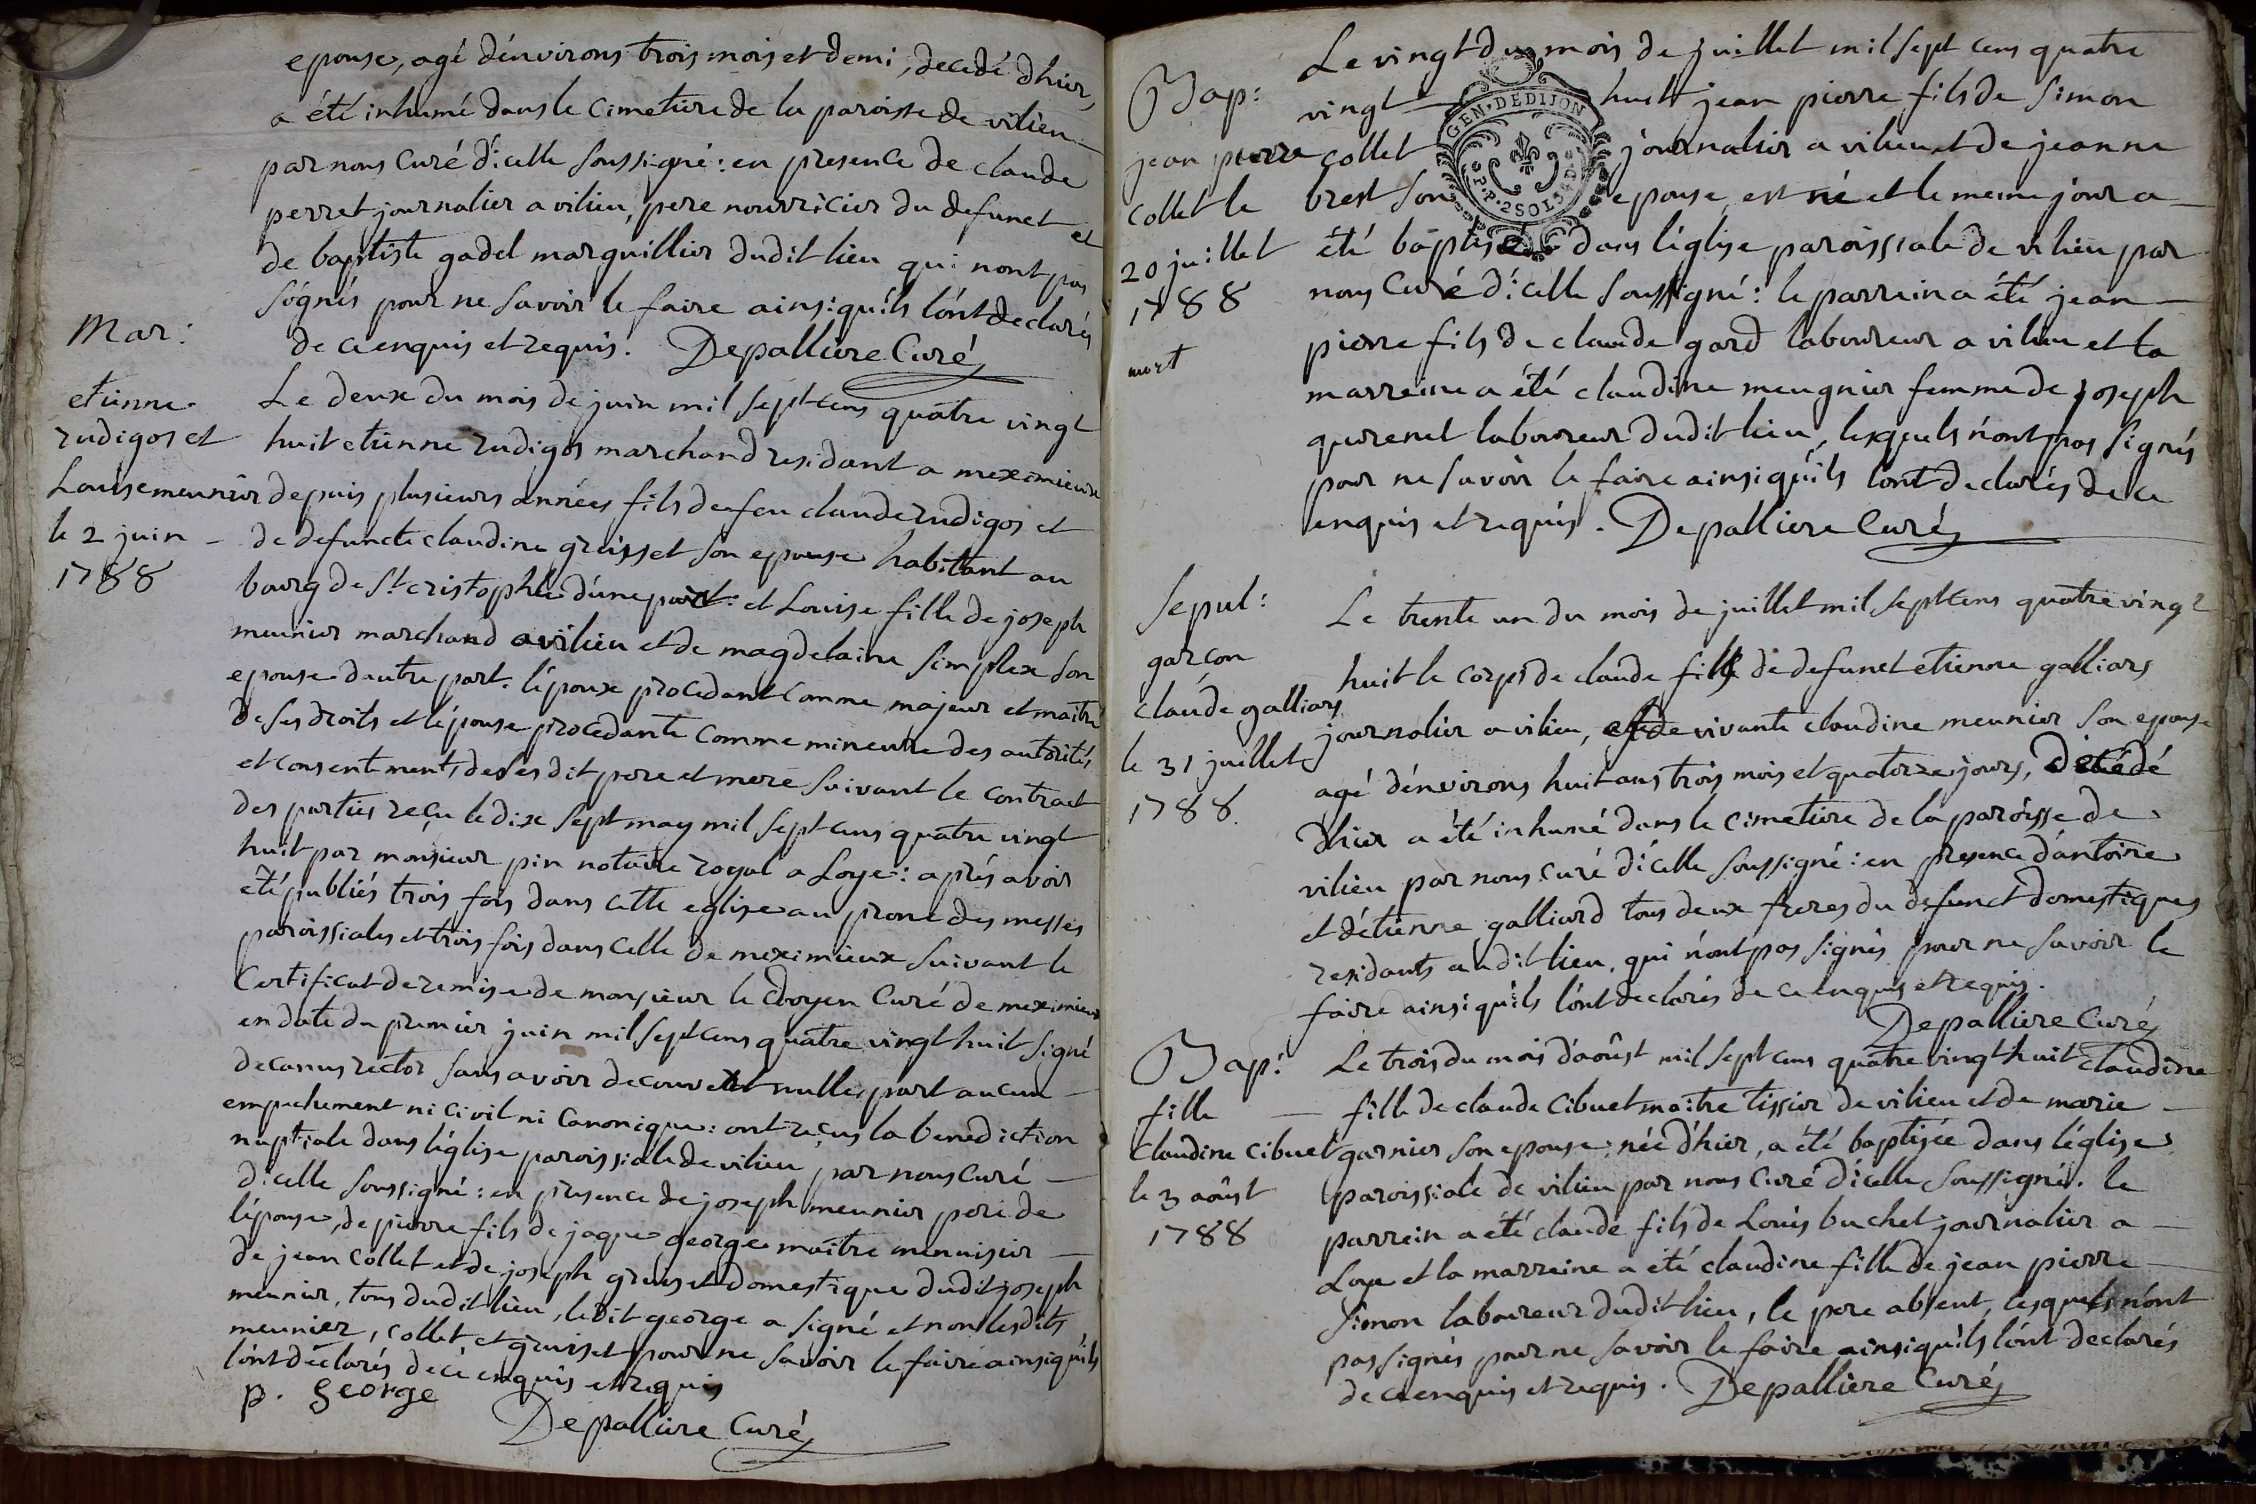 epouse, agé dénvirons trois mois et demi, decedé dhier,
a été inhumé dans le cimetiere de la paroisse de vilieu
par nous Curé d'icelle soussigné : en presence de claude
perret journalier a vilieu, pere nourricier du defunct et
de baptiste gadel marguillier dudit lieu qui nont pas
signés pour ne savoir le faire ainsi qu'ils lónt declarés
de ce enquis et requis. Depalliere Curé
Mar :
etienne
rudigos et
Louise meunier
le 2 juin
1788
Le deux du mois de juin mil sept cens quatre vingt
huit etienne rudigos marchand residant a meximieux
depuis plusieurs années fils de feu claude rudigos et
de defuncte claudine greisset son epouse habitant au
bourg de St cristophle d'une part : et Louise fille de joseph
meunier marchand a vilieu et de magdelaine simplex son
epouse dautre part. l'époux procedant comme majeur et maitre
de ses droits et l'épouse procedante comme mineure des autorités
et consentements de ses dit pere et mere suivant le contract
des parties reçu le dix sept may mil sept cens quatre vingt
huit par monsieur pin notaire royal a Loye : aprés avoir
été publiés trois fois dans cette eglise au prone des messes
paroissiales et trois fois dans celle de meximieux suivant le
Certificat de remise de monsieur le doyen Curé de meximieux
en date du premier juin mil sept cens quatre vingt huit signé
decanus rector sans avoir decouvert nulle part aucun
empechement ni civil ni Canonique : ont reçus la benediction
nuptiale dans l'église paroissiale de vilieu par nous Curé
d'icelle soussigné : en presence de joseph meunier pere de
l'épouse, de pierre fils de jaque george maitre menuisier
de jean Collet et de joseph greisset domestique dudit joseph
meunier, tous dudit lieu, ledit george a signé et non lesdits
meunier, collet et greisset pour ne savoir le faire ainsi qu'ils
lónt déclarés de ce enquis et requis
p. george
Depalliere Curé
Bap :
jean pierre
Collet le
20 juillet
1788
mort
Le vingt du mois de juillet mil sept cens quatre
vingt huit jean pierre fils de simon
collet journalier a vilieu et de jeanne
brest son epouse est né et le meme jour a
été baptisé dans l'église paroissiale de vilieu par
nous Curé d'icelle soussigné : le parrein a été jean
pierre fils de claude gard laboureur a vilieu et la
marreine a été claudine meugnier femme de joseph
querenet laboureur dudit lieu, lesquels n'ont pas signés
pour ne savoir le faire ainsi qu'ils lont declarés de ce
enquis et requis. Depalliere Curé
GEN · DE DIJON
P · P · 2 SOLS
Sepul :
garçon
claude galliars
le 31 juillet
1788.
Le trente un du mois de juillet mil sept cens quatre vingt
huit le corps de claude fils de defunct etienne galliars
journalier a vilieu, et de vivante claudine meunier son epouse
agé d'énvirons huit ans trois mois et quatorze jours, décédé
d'hier a été inhumé dans le cimetiere de la paroisse de
vilieu par nous Curé d'icelle soussigné : en presence d'antoine
et d'étienne galliard tous deux freres du defunct domestiques
residants audit lieu, qui n'ont pas signés pour ne savoir le
faire ainsi qu'ils lónt declarés de ce enquis et requis.
Depalliere Curé
Bap :
fille
Claudine Cibuet
le 3 aoûst
1788
Le trois du mois d'aoûst mil sept cens quatre vingt huit claudine
fille de claude Cibuet maître tissier de vilieu et de marie
garnier son epouse, née d'hier, a été baptisée dans l'église
paroissiale de vilieu par nous Curé d'icelle soussigné. le
parrein a été claude fils de Louis buchet journalier a
Loye et la marreine a été claudine fille de jean pierre
simon laboureur dudit lieu, le pere absent, lesquels n'ont
pas signés pour ne savoir le faire ainsi qu'ils lónt declarés
de ce enquis et requis. Depalliere Curé